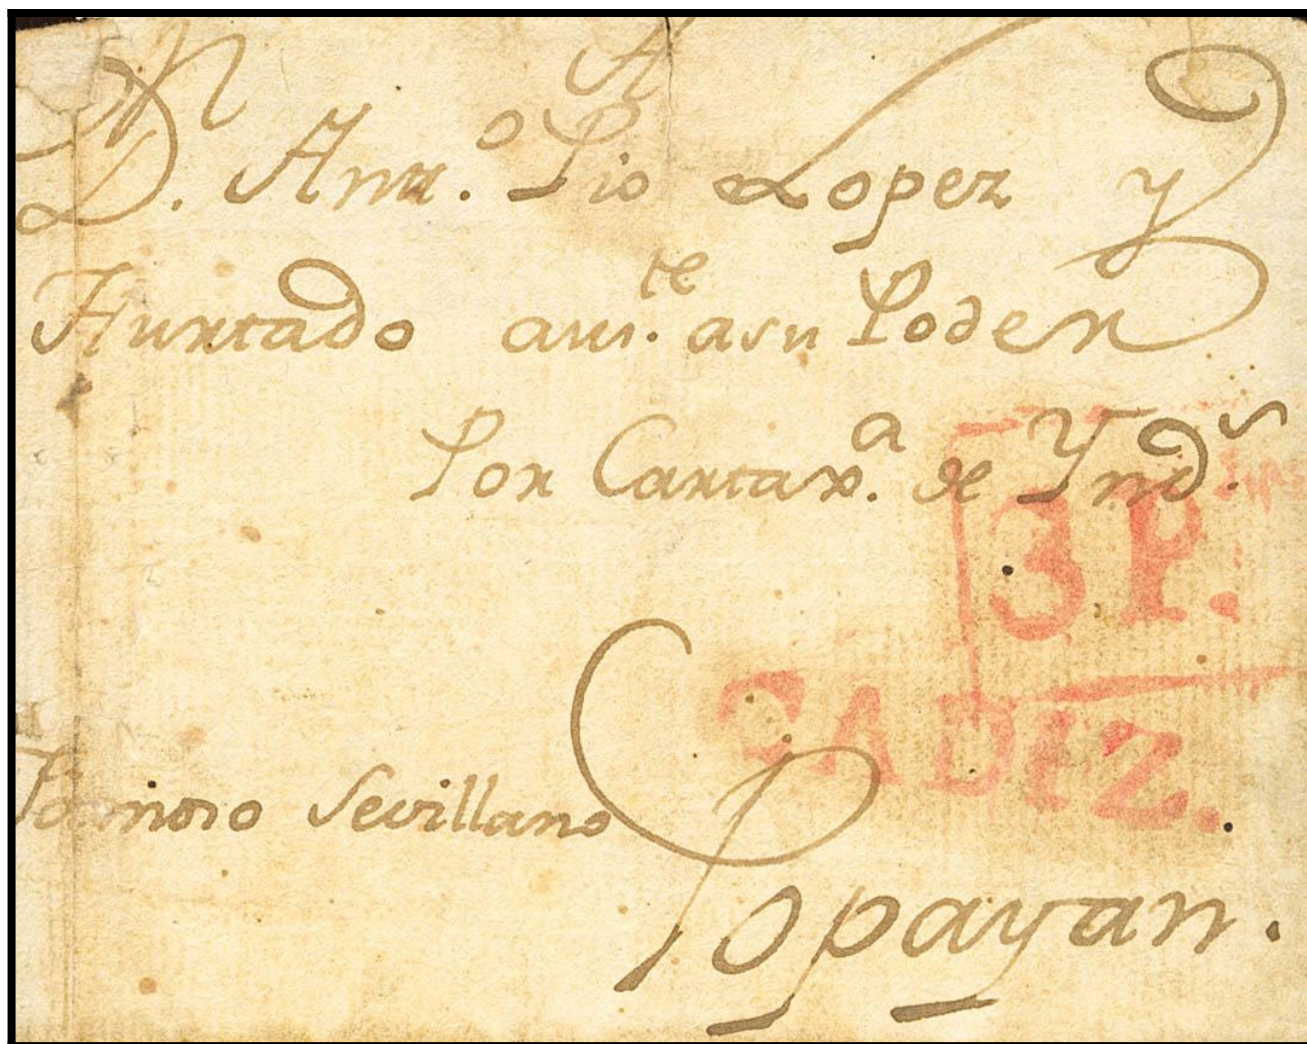 A
D. Antt.º Pio Lopez y
Hurtado aus.te asu Poder
Por Cartax.a de Ynd.s
3P.
CADIZ.
Sevillano
Popayan.